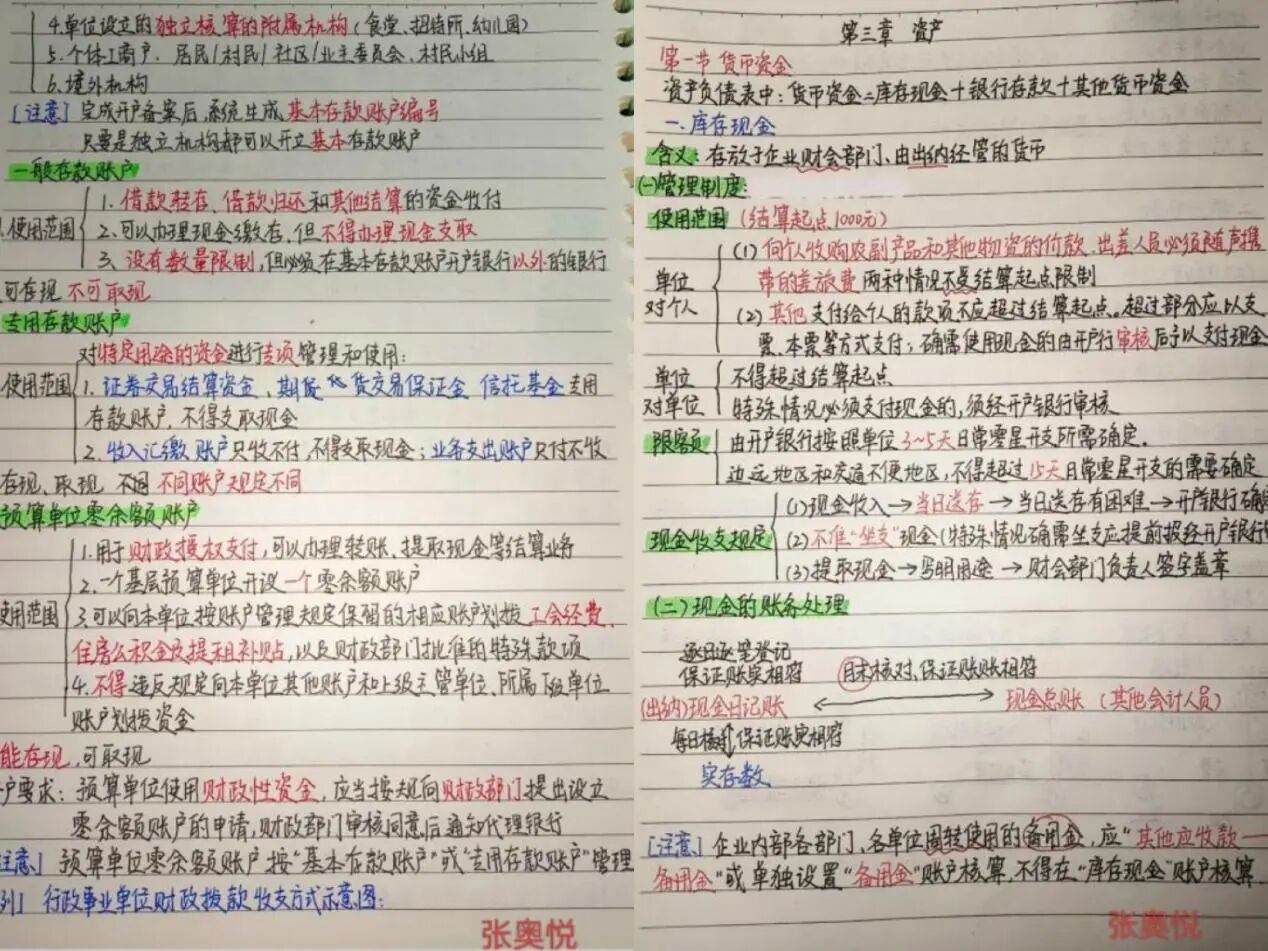 4.单位设立的独立核算的附属机构(食堂、招待所、幼儿园)
5.个体工商户、居民/村民/社区/业主委员会、村民小组
6.境外机构
[注意]完成开户备案后,系统生成基本存款账户编号
只要是独立机构都可以开立基本存款账户
一般存款账户
使用范围
1.借款转存、借款归还和其他结算的资金收付
2.可以办理现金缴存,但不得办理现金支取
3.没有数量限制,但必须在基本存款账户开户银行以外的银行
可存现 不可取现
专用存款账户
对特定用途的资金进行专项管理和使用:
使用范围
1.证券交易结算资金、期货 货交易保证金 信托基金专用
存款账户,不得支取现金
2.收入汇缴账户只收不付,不得支取现金;业务支出账户只付不收
存现、取现 不同账户规定不同
预算单位零余额账户
使用范围
1.用于财政授权支付,可以办理转账、提取现金等结算业务
2.一个基层预算单位开设一个零余额账户
3.可以向本单位按账户管理规定保留的相应账户划拨工会经费、
住房公积金及提租补贴,以及财政部门批准的特殊款项
4.不得违反规定向本单位其他账户和上级主管单位、所属下级单位
账户划拨资金
能存现,可取现
户要求:预算单位使用财政性资金,应当按规向财政部门提出设立
零余额账户的申请,财政部门审核同意后通知代理银行
注意]预算单位零余额账户按“基本存款账户”或“专用存款账户”管理
例]行政事业单位财政拨款收支方式示意图:
张奥悦
第三章 资产
第一节 货币资金
资产负债表中:货币资金=库存现金+银行存款+其他货币资金
一、库存现金
含义:存放于企业财会部门、由出纳经管的货币
(一)管理制度:
使用范围(结算起点1000元)
单位
对个人
(1)向个人收购农副产品和其他物资的付款、出差人员必须随身携
带的差旅费两种情况不受结算起点限制
(2)其他支付给个人的款项不应超过结算起点。超过部分应以支
票、本票等方式支付;确需使用现金的由开户行审核后予以支付现金
单位
对单位
不得超过结算起点
特殊情况必须支付现金的,须经开户银行审核
限额
由开户银行按照单位3~5天日常零星开支所需确定.
边远地区和交通不便地区,不得超过15天日常零星开支的需要确定
现金收支规定
(1)现金收入→当日送存→当日送存有困难→开户银行确
(2)不准“坐支”现金(特殊情况确需坐支应提前报经开户银行
(3)提取现金→写明用途→财会部门负责人签字盖章
(二)现金的账务处理
逐日逐笔登记
保证账实相符 月末核对、保证账账相符
(出纳)现金日记账 ←→ 现金总账(其他会计人员)
每日核对 保证账实相符
实存数
[注意]企业内部各部门、各单位周转使用的备用金,应“其他应收款—
备用金”或单独设置“备用金”账户核算,不得在“库存现金”账户核算.
张奥悦